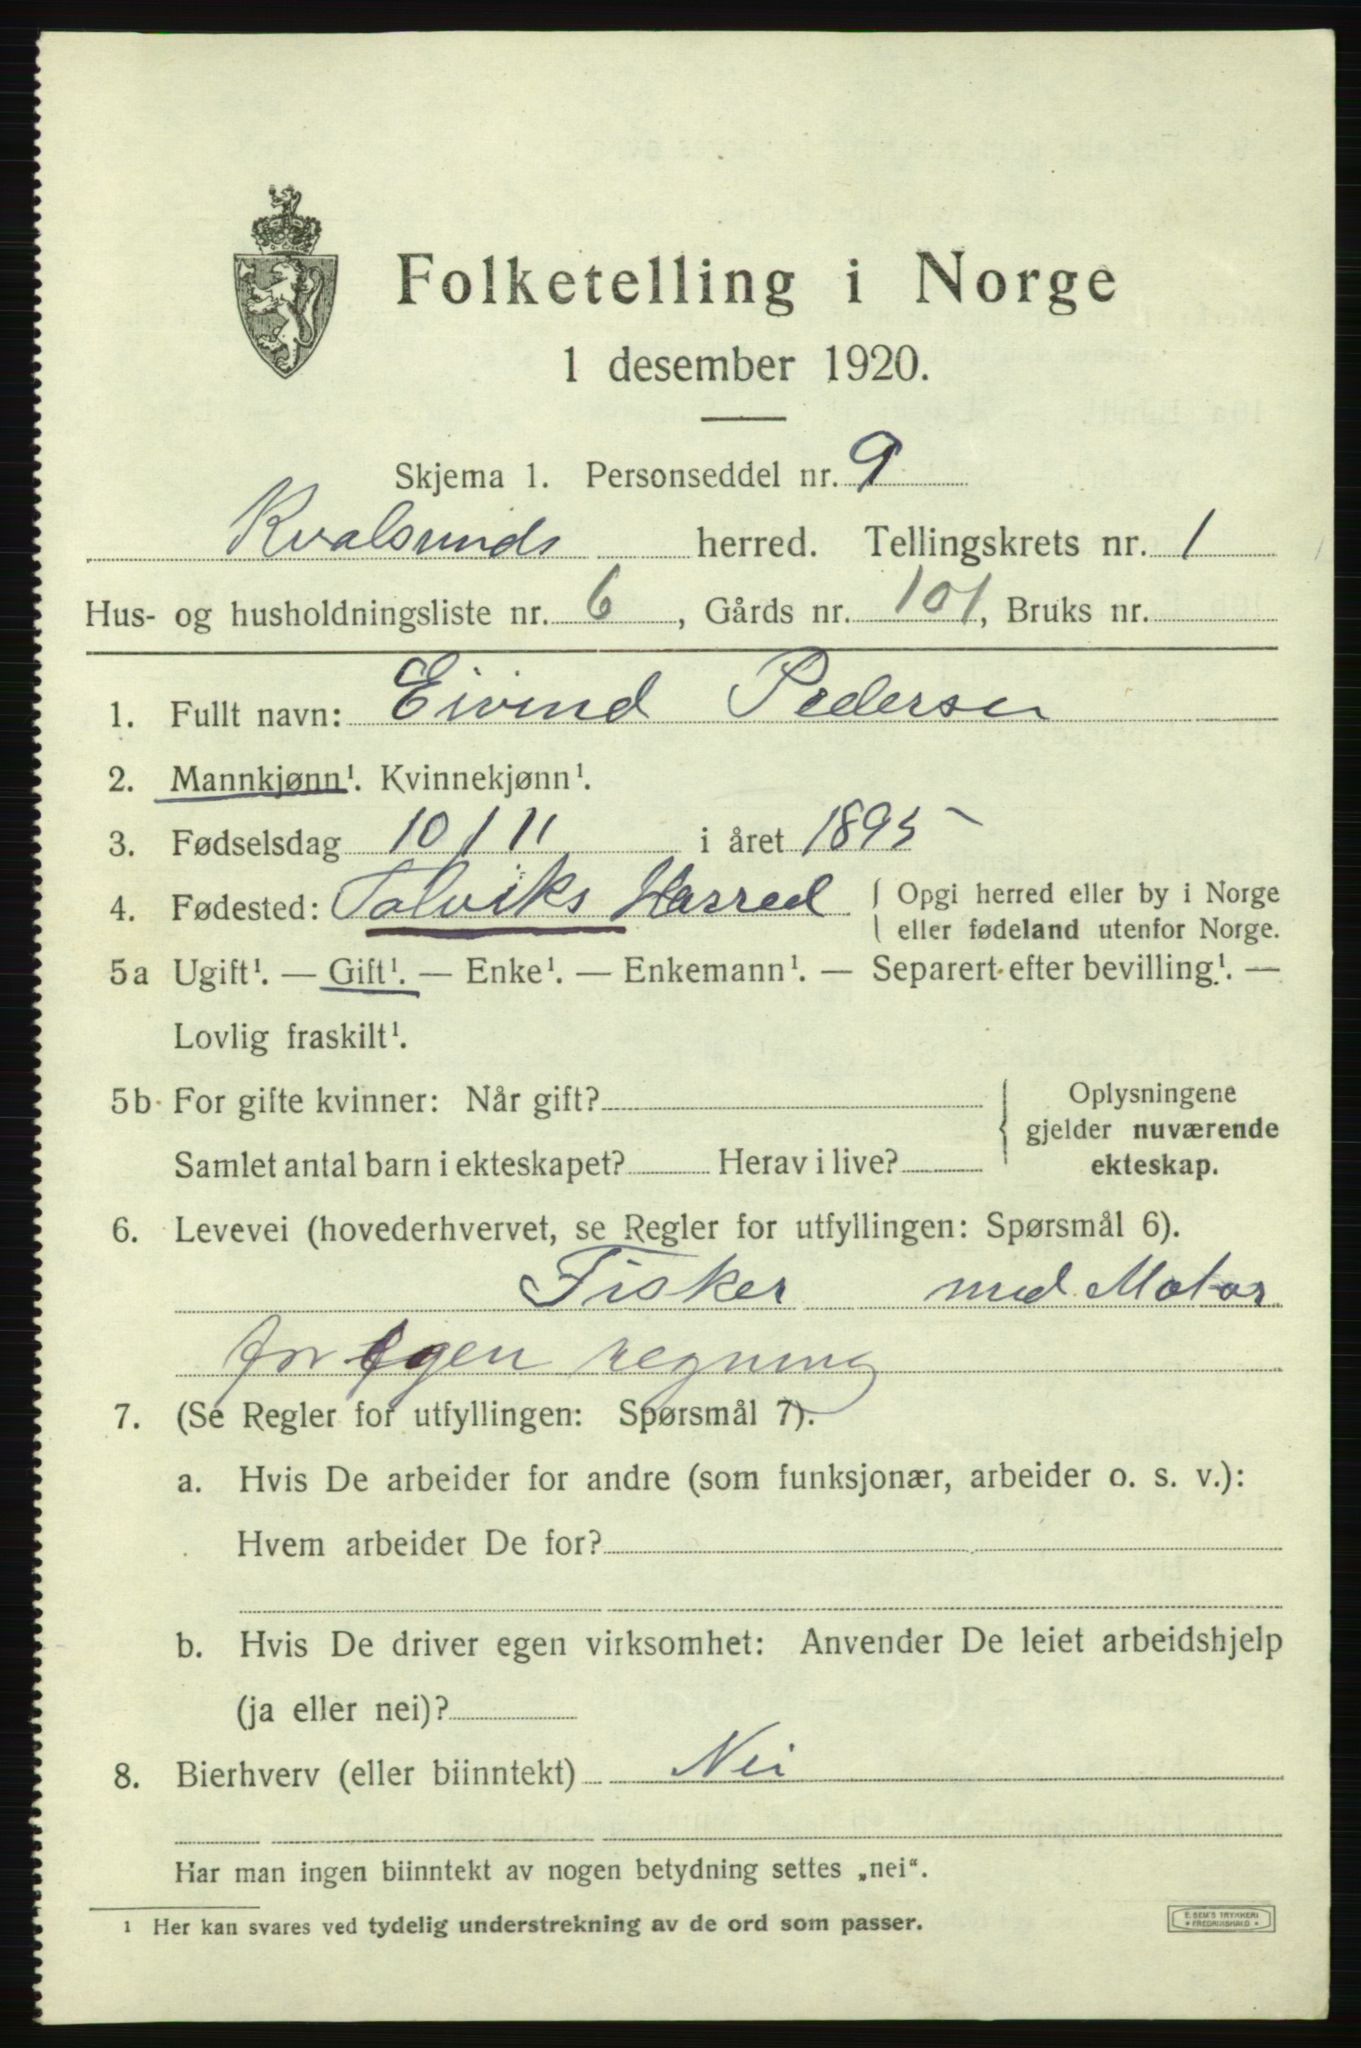 Folketelling i Norge
1 desember 1920.
Skjema 1. Personseddel nr. 9
Kvalsunds herred. Tellingskrets nr. 1
Hus- og husholdningsliste nr. 6, Gårds nr. 101, Bruks nr.
1. Fullt navn: Eivind Pedersen
2. Mannkjønn¹. Kvinnekjønn¹.
3. Fødselsdag 10/11 i året 1895
4. Fødested: Talviks Harred { Opgi herred eller by i Norge
eller fødeland utenfor Norge.
5a Ugift¹. — Gift¹. — Enke¹. — Enkemann¹. — Separert efter bevilling¹. —
Lovlig fraskilt¹.
5b For gifte kvinner: Når gift? Oplysningene
gjelder nuværende
Samlet antal barn i ekteskapet? Herav i live? ekteskap.
6. Levevei (hovederhvervet, se Regler for utfyllingen: Spørsmål 6).
Fisker med Motor
for Egen regning
7. (Se Regler for utfyllingen: Spørsmål 7).
a. Hvis De arbeider for andre (som funksjonær, arbeider o. s. v.):
Hvem arbeider De for?
b. Hvis De driver egen virksomhet: Anvender De leiet arbeidshjelp
(ja eller nei)?
8. Bierhverv (eller biinntekt) Nei
Har man ingen biinntekt av nogen betydning settes „nei“.
¹ Her kan svares ved tydelig understrekning av de ord som passer.
E. SEM'S TRYKKERI
★ FREDRIKSHALD ★